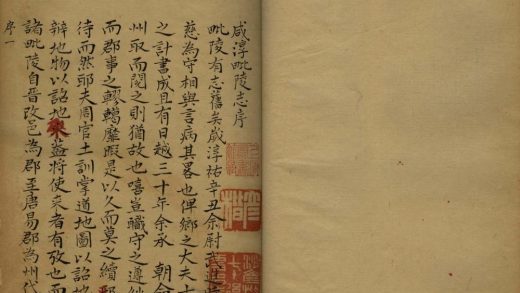 咸淳毗陵志序
毗陵有志舊矣歲淳祐辛丑余尉武進
慈為守相與言病其畧也俾鄉之大夫士
之計書成且有日越三十年余承 朝命
州取而閱之則猶故也嘻豈職守之遵
而郡事之轇轕靡暇是以久而莫之續耶
待而然耶夫周官土訓掌道地圖以詔地
辨地物以詔地求蓋將使來者有攷也而
諸毗陵自晉改邑為郡至唐易郡為州代
序一